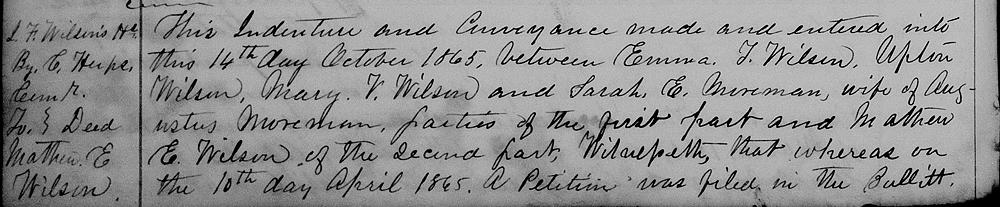 J. F. Wilson's Hs.
By. C. Heips,
Comr.
To. } Deed
Mathew. E
Wilson.
This Indenture and Conveyance made and entered into
this 14th day October 1865, between Emma. F. Wilson, Upton
Wilson, Mary. V. Wilson and Sarah. E. Moreman, wife of Aug-
ustus Moreman, parties of the first part and Mathew
E. Wilson of the second part, Witnesseth, that whereas on
the 10th day April 1865. A Petition was filed in the Bullitt.